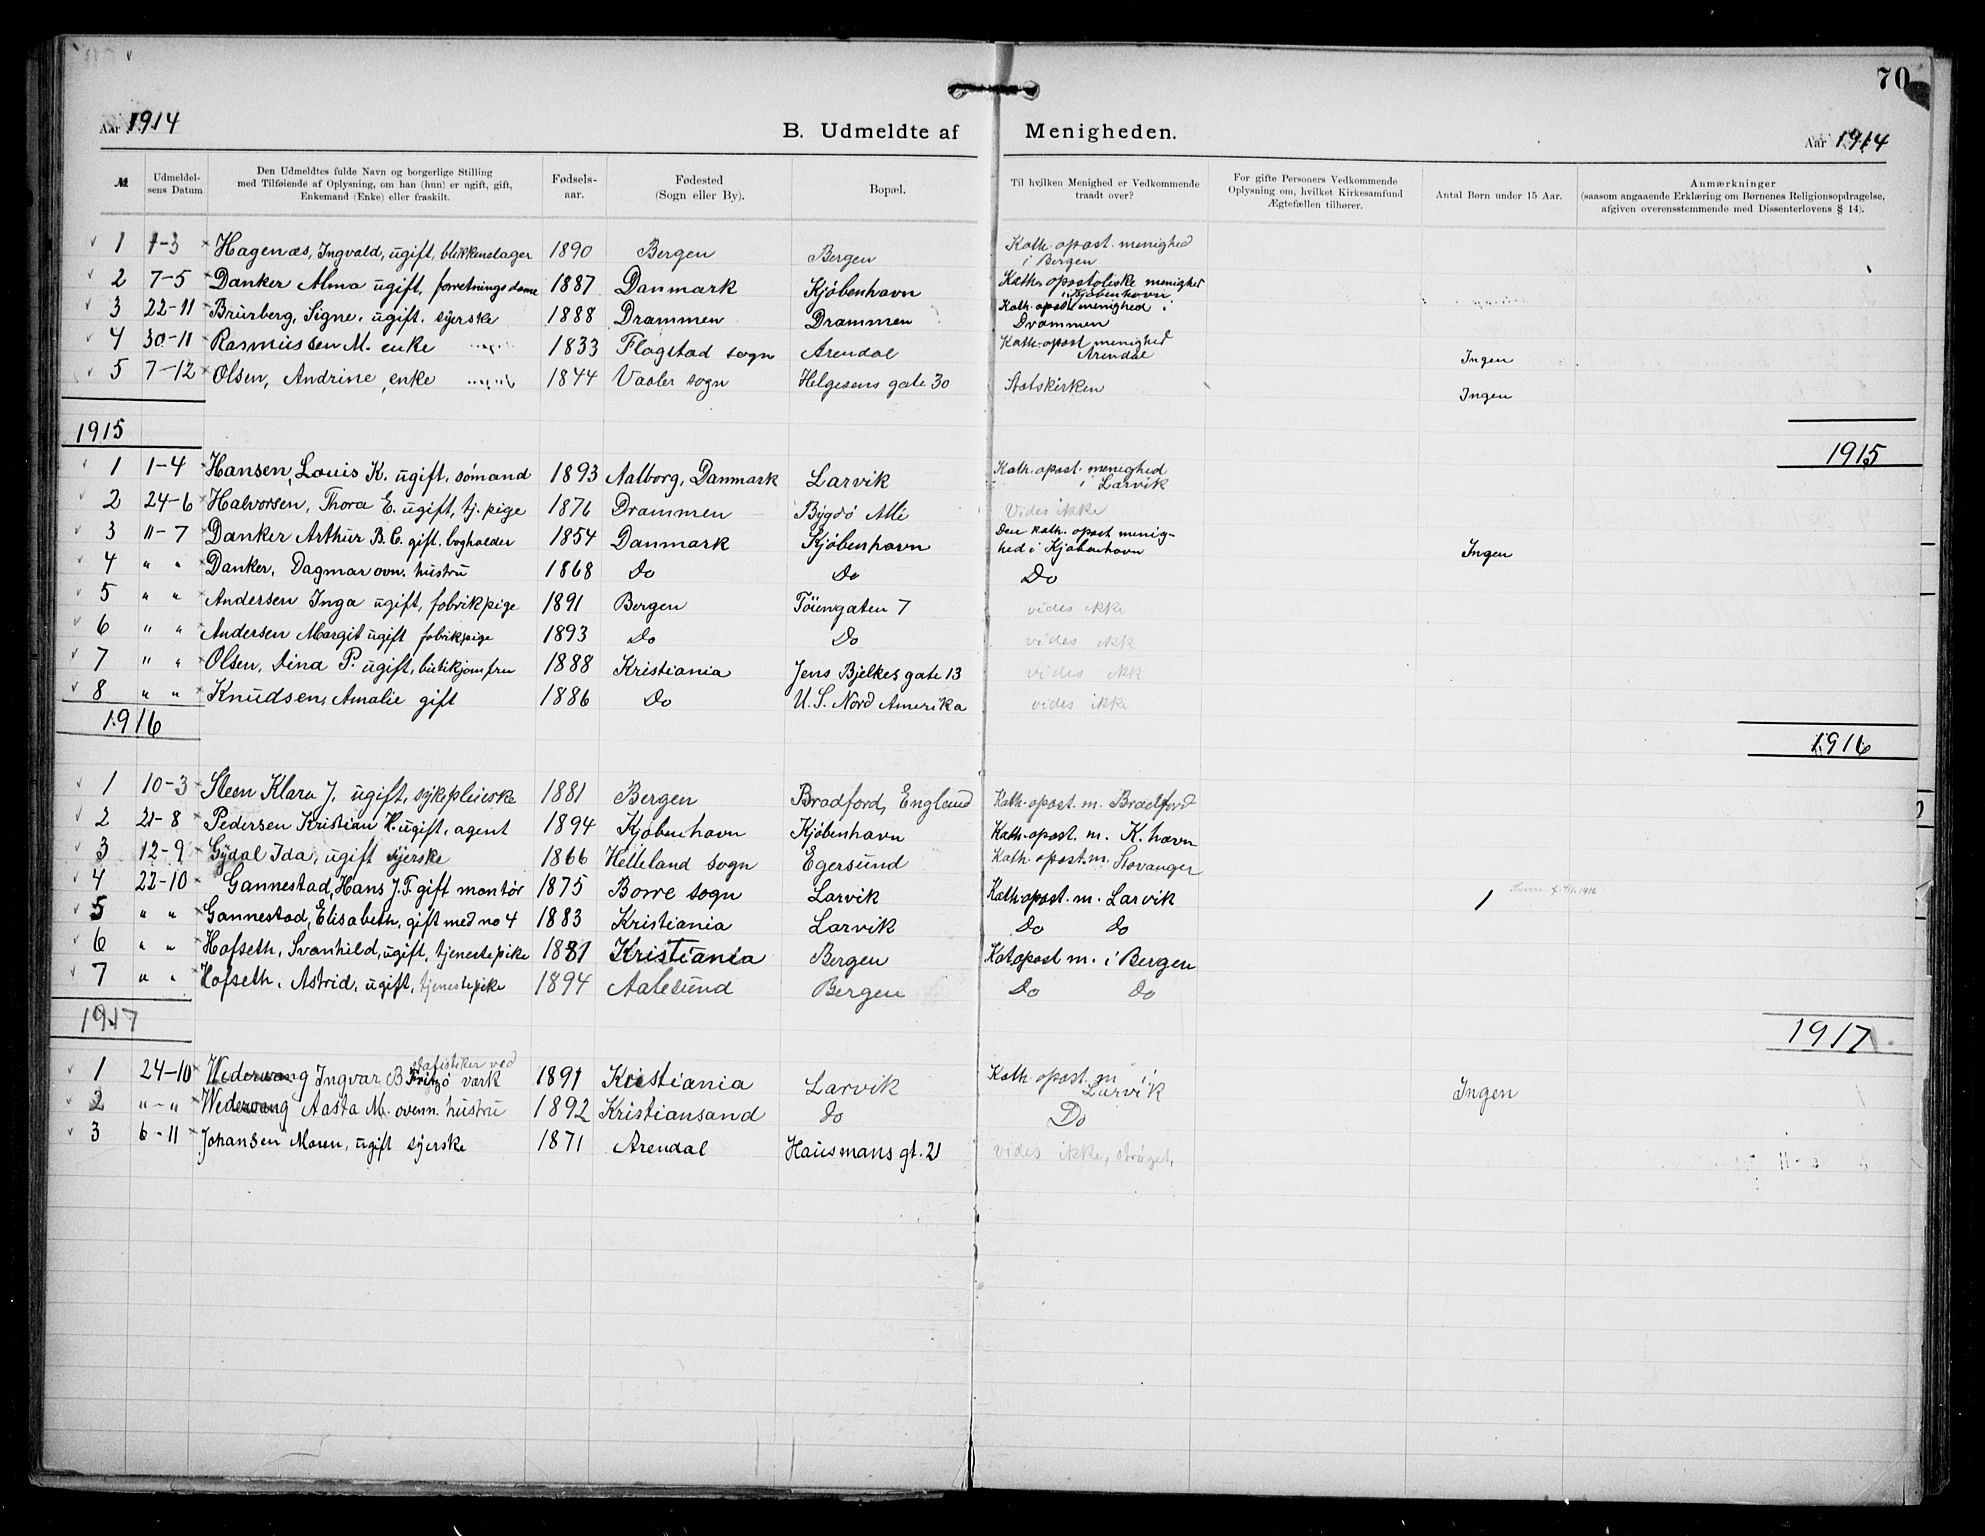 70
Aar 1914
B. Udmeldte af Menigheden.
Aar 1914
№
Udmeldel-
sens Datum
Den Udmeldtes fulde Navn og borgerlige Stilling
med Tilføiende af Oplysning, om han (hun) er ugift, gift,
Enkemand (Enke) eller fraskilt.
Fødsels-
aar.
Fødested
(Sogn eller By).
Bopæl.
Til hvilken Menighed er Vedkommende
traadt over?
For gifte Personers Vedkommende
Oplysning om, hvilket Kirkesamfund
Ægtefællen tilhører.
Antal Børn under 15 Aar.
Anmærkninger
(saasom angaaende Erklæring om Børnenes Religionsopdragelse,
afgiven overensstemmende med Dissenterlovens § 14).
1 1-3 Hagenæs, Ingvald, ugift, blikkenslager 1890 Bergen Bergen Kath. apost. menighed
i Bergen
2 7-5 Danker Alma ugift, forretningsdame 1887 Danmark Kjøbenhavn Kath. apostoliske menighed
i Kjøbenhavn
3 22-11 Brurberg, Signe, ugift. syerske 1888 Drammen Drammen Kath. apost. menighed i
Drammen
4 30-11 Rasmussen M. enke 1833 Flagstad sogn Arendal Kath. apost menighed
Arendal Ingen
5 7-12 Olsen, Andrine, enke 1844 Vaaler sogn Helgesens gate 30 Statskirken Ingen
1915
1915
1 1-4 Hansen, Louis K. ugift, sømand 1893 Aalborg, Danmark Larvik Kath. apost. menighed
i Larvik
2 24-6 Halvorsen, Thora E. ugift, tj. pige 1876 Drammen Bygdø Alle Vides ikke
3 11-7 Danker Arthur B. C. gift. bogholder 1854 Danmark Kjøbenhavn Den kath. apost menig-
hed i Kjøbenhavn Ingen
4 " " Danker, Dagmar ovn. hustru 1868 Do Do Do
5 " " Andersen Inga ugift, fabrikpige 1891 Bergen Tøiengaten 7 vides ikke
6 " " Andersen Margit ugift fabrikpige 1893 Do Do vides ikk
7 " " Olsen, Dina P. ugift, butikjomfru 1888 Kristiania Jens Bjelkes gate 13 vides ikk
8 " " Knudsen, Amalie gift 1886 Do U. S. Nord Amerika vides ikke
1916
1916
1 10-3 Steen Klara J. ugift, sykepleierske 1881 Bergen Bradford, England Kath. apost. m. Bradford
2 21-8 Pedersen Kristian H. ugift, agent 1894 Kjøbenhavn Kjøbenhavn Kath. apost. m. K.havn
3 12-9 Gydal Ida, ugift syerske 1866 Helleland sogn Egersund Kath. apost. m. Stavanger
4 22-10 Gannestad, Hans J. F gift montør 1875 Borre sogn Larvik Kath. apost. m. Larvik 1
5 " " Gannestad, Elisabeth, gift med no 4 1883 Kristiania Larvik Do do
6 " " Hofseth, Svanhild, ugift, tjenestepike 1881 Kristiania Bergen Kat. apost m. i Bergen
7 " " Hofseth, Astrid, ugift, tjenestepike 1894 Aalesund Bergen Do do
1917
1917
statistiker ved
1 24-10 Wedervang Ingvar B Fritzø værk 1891 Kristiania Larvik Kath. apost. m i
Larvik Ingen
2 " - " Wedervang Aasta M. ovenn. hustru 1892 Kristiansand do Do
3 6-11 Johansen Maren, ugift syerske 1871 Arendal Hausmans gt. 21 vides ikke, strøget.